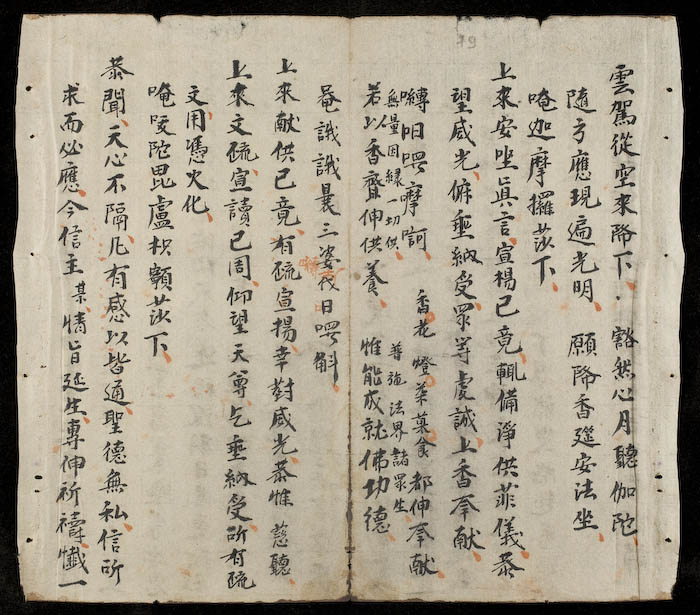 雲駕從空來降下 豁然心月聽伽陀
隨方應現遍光明 願降香筵安法坐
唵迦摩攞莎下
上來安坐眞言宣楊已竟輒備淨供菲儀恭
望威光俯垂納受眾等虔誠上香奉献
嚩日囉摩訶 香花 燈茶菓食 都伸奉献
無量因緣一切供 普施法界諸眾生
若以香齋伸供養 惟能成就佛功德
菴誐誐曩三婆伐日囉斛
上來献供已竟有疏宣揚幸對威光恭惟慈聽
上來文疏宣讀已周仰望天尊乞垂納受所有疏
文用憑火化
唵陀毘盧枳莎下
恭聞天心不隔凡有感以皆通聖德無私信所
求而必應今信主某情旨延生專伸祈禱懺一